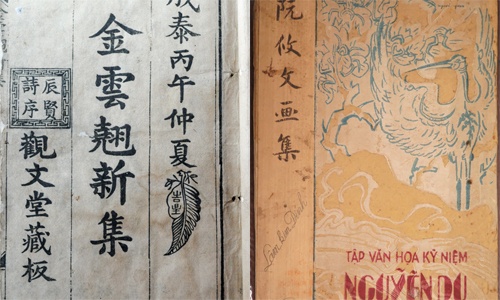 成泰丙午仲夏
金雲翹新集
辰賢
詩序
觀文堂藏板
阮攸文画集
TẬP VĂN HỌA KỶ NIỆM
NGUYỄN DU